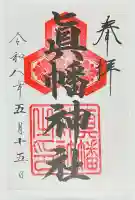 奉拝
眞幡神社
令和八年五月十五日